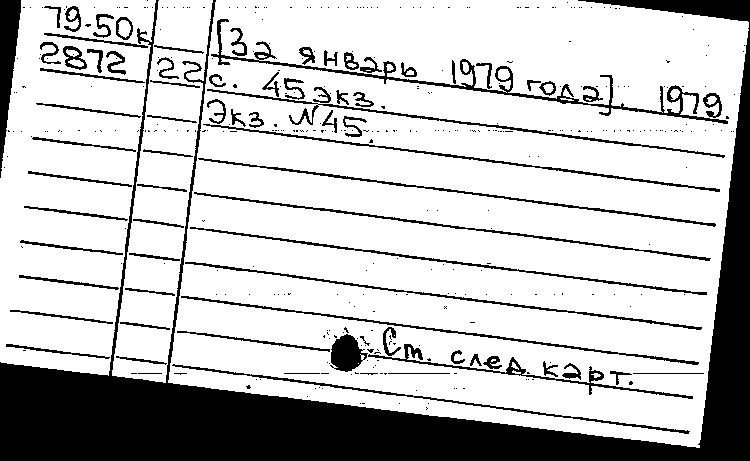 79-50к
[За январь 1979 года]. 1979.
2872 22с. 45 экз.
Экз. №45.
См. след. карт.